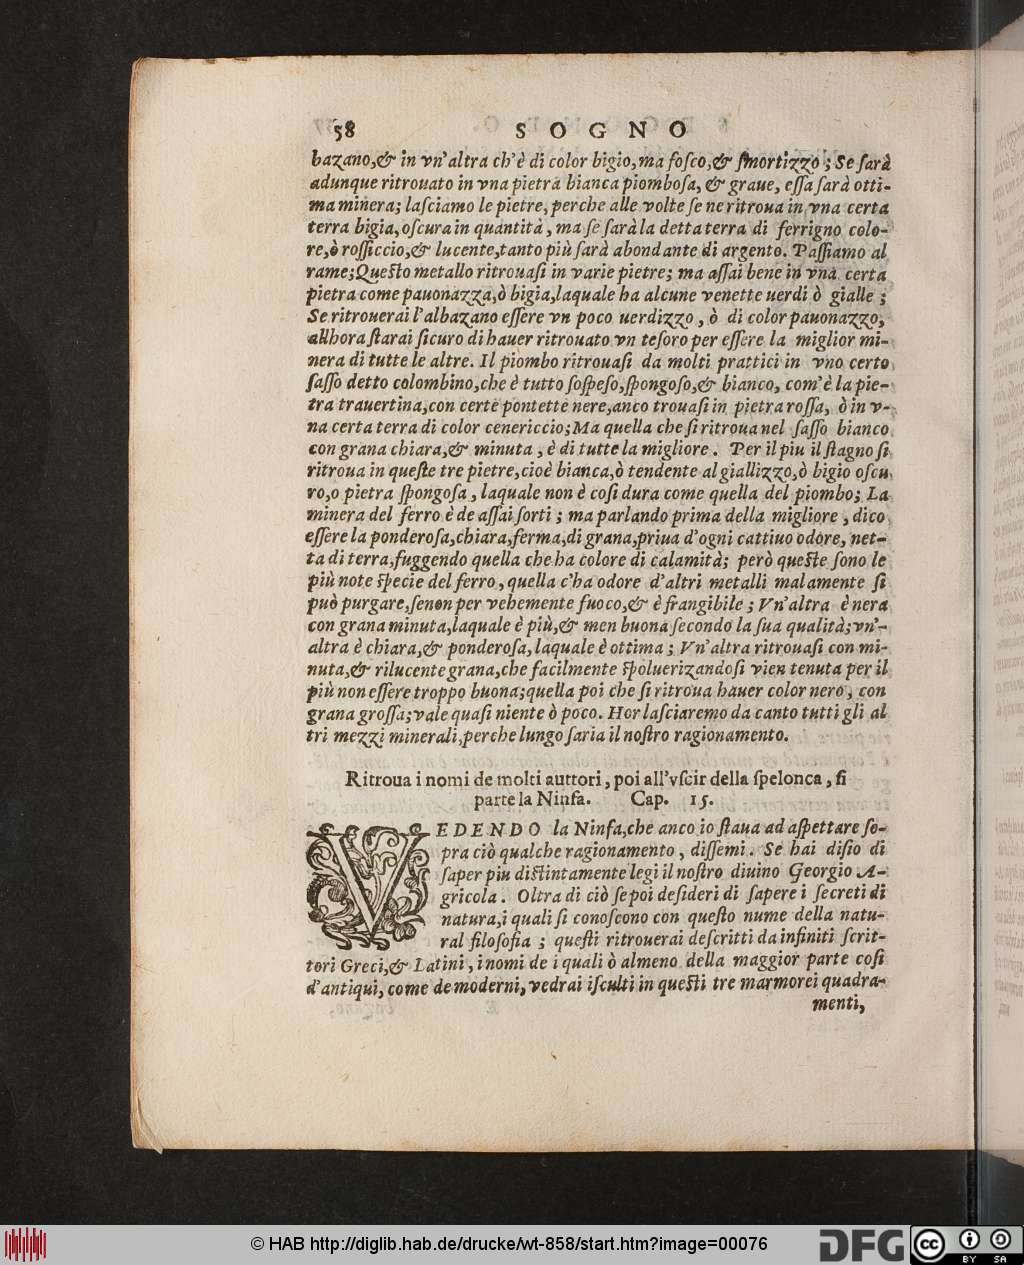 58 SOGNO
bazano,& in vn'altra ch'è di color bigio, ma fosco,& smortizzo; Se sarà
adunque ritrouato in vna pietra bianca piombosa, & graue, essa sarà otti-
ma minera; lasciamo le pietre, perche alle volte se ne ritroua in vna certa
terra bigia, oscura in quantità, ma se sarà la detta terra di ferrigno colo-
re,ò rossiccio,& lucente,tanto più sarà abondante di argento. Passiamo al
rame;Questo metallo ritrouasi in varie pietre; ma assai bene in vna certa
pietra come pauonazza,ò bigia,laquale ha alcune venette uerdi ò gialle;
Se ritrouerai l'albazano essere vn poco uerdizzo, ò di color pauonazzo,
allhora starai sicuro di hauer ritrouato vn tesoro per essere la miglior mi-
nera di tutte le altre. Il piombo ritrouasi da molti prattici in vno certo
sasso detto colombino,che è tutto sospeso,spongoso,& bianco, com'è la pie-
tra trauertina,con certe pontette nere,anco trouasi in pietra rossa, ò in v-
na certa terra di color cenericcio;Ma quella che si ritroua nel sasso bianco
con grana chiara,& minuta, è di tutte la migliore. Per il piu il stagno si
ritroua in queste tre pietre,cioè bianca,ò tendente al giallizzo,ò bigio oscu
ro,o pietra spongosa, laquale non è cosi dura come quella del piombo; La
minera del ferro è de assai sorti; ma parlando prima della migliore, dico
essere la ponderosa,chiara,ferma,di grana,priua d'ogni cattiuo odore, net-
ta di terra,fuggendo quella che ha colore di calamità; però queste sono le
più note specie del ferro, quella c'ha odore d'altri metalli malamente si
può purgare,senon per vehemente fuoco,& è frangibile; Vn'altra è nera
con grana minuta,laquale è più,& men buona secondo la sua qualità;vn'-
altra è chiara,& ponderosa,laquale è ottima; Vn'altra ritrouasi con mi-
nuta,& rilucente grana,che facilmente spoluerizandosi vien tenuta per il
più non essere troppo buona;quella poi che si ritroua hauer color nero, con
grana grossa;vale quasi niente ò poco. Hor lasciaremo da canto tutti gli al
tri mezzi minerali,perche lungo saria il nostro ragionamento.
Ritroua i nomi de molti auttori, poi all'vscir della spelonca, si
parte la Ninfa. Cap. 15.
VEDENDO la Ninfa,che anco io staua ad aspettare so-
pra ciò qualche ragionamento, dissemi. Se hai disio di
saper piu distintamente legi il nostro diuino Georgio A-
gricola. Oltra di ciò se poi desideri di sapere i secreti di
natura,i quali si conoscono con questo nume della natu-
ral filosofia; questi ritrouerai descritti da infiniti scrit-
tori Greci,& Latini, i nomi de i quali ò almeno della maggior parte cosi
d'antiqui, come de moderni, vedrai isculti in questi tre marmorei quadra-
menti,
© HAB http://diglib.hab.de/drucke/wt-858/start.htm?image=00076
DFG cc BY SA